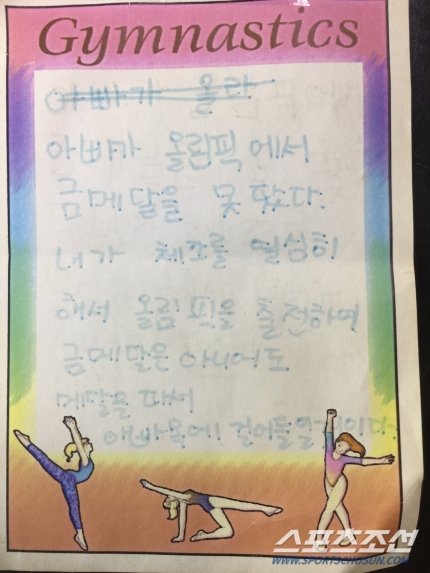 Gymnastics
아빠가 올라
아빠가 올린픽에서
금메달을 못 땄다.
너가 체조를 열심히
해서 올림핏을 출전하며
금메달은 아니어도
메달을 따서
애빠목에 걸어들일것이다.
스포츠조선
WWW.SPORTSCHOSUN.COM